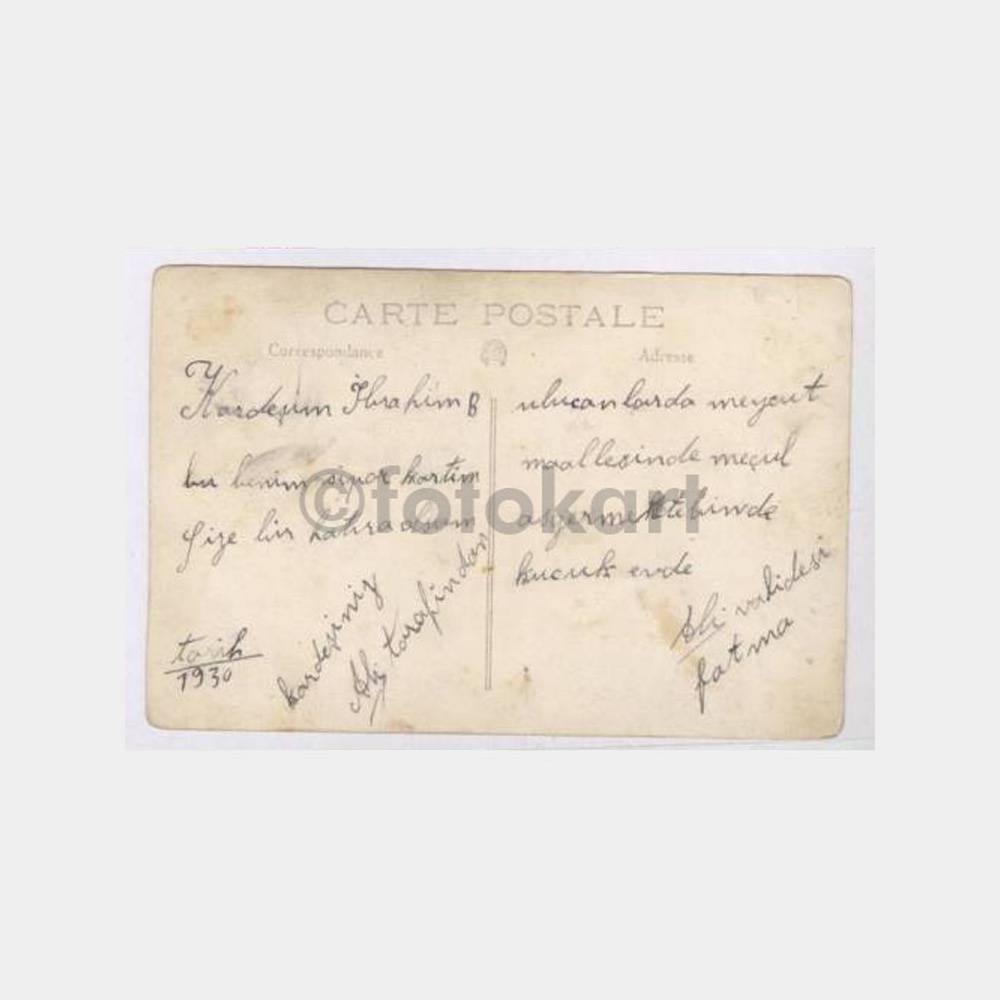 CARTE POSTALE
Correspondance
Adresse
Kardeşım İbrahim B
bu benim kartım
Size bir
kardeşiniz
Ali tarafından
tarih
1930
ulucanlarda
maallesinde meçul
kucuk evde
Ali validesi
fatma
©fotokart